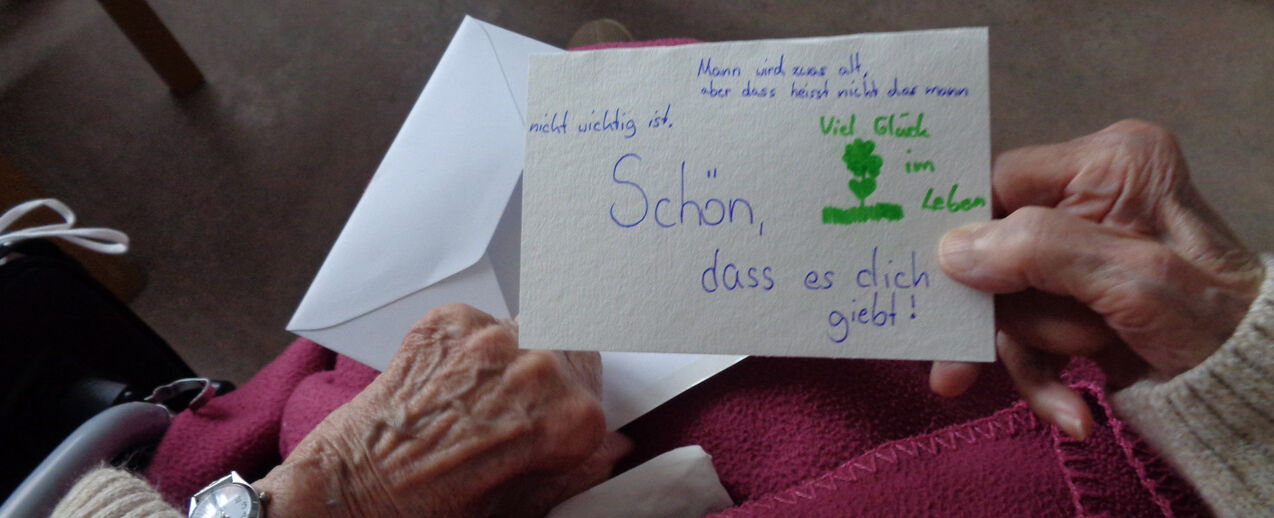 Mann wird zwas alt,
aber dass heisst nicht das mann
nicht wichtig ist.
Viel Glück
im
Leben
Schön,
dass es dich
giebt!